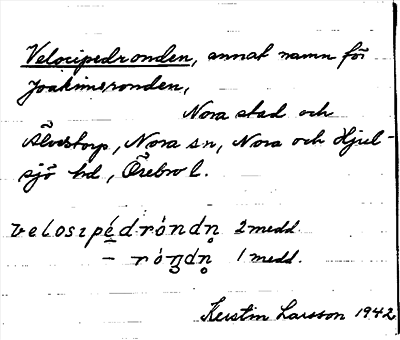 Velocipedronden, annat namn för
Joakimsronden,
Nora stad och
Älvstorp, Nora sn, Nora och Hjul-
sjö hd, Örebro l.
velosɩpédróndn̥ 2 medd.
– róŋdn̥ 1 medd.
Kerstin Larsson 1942